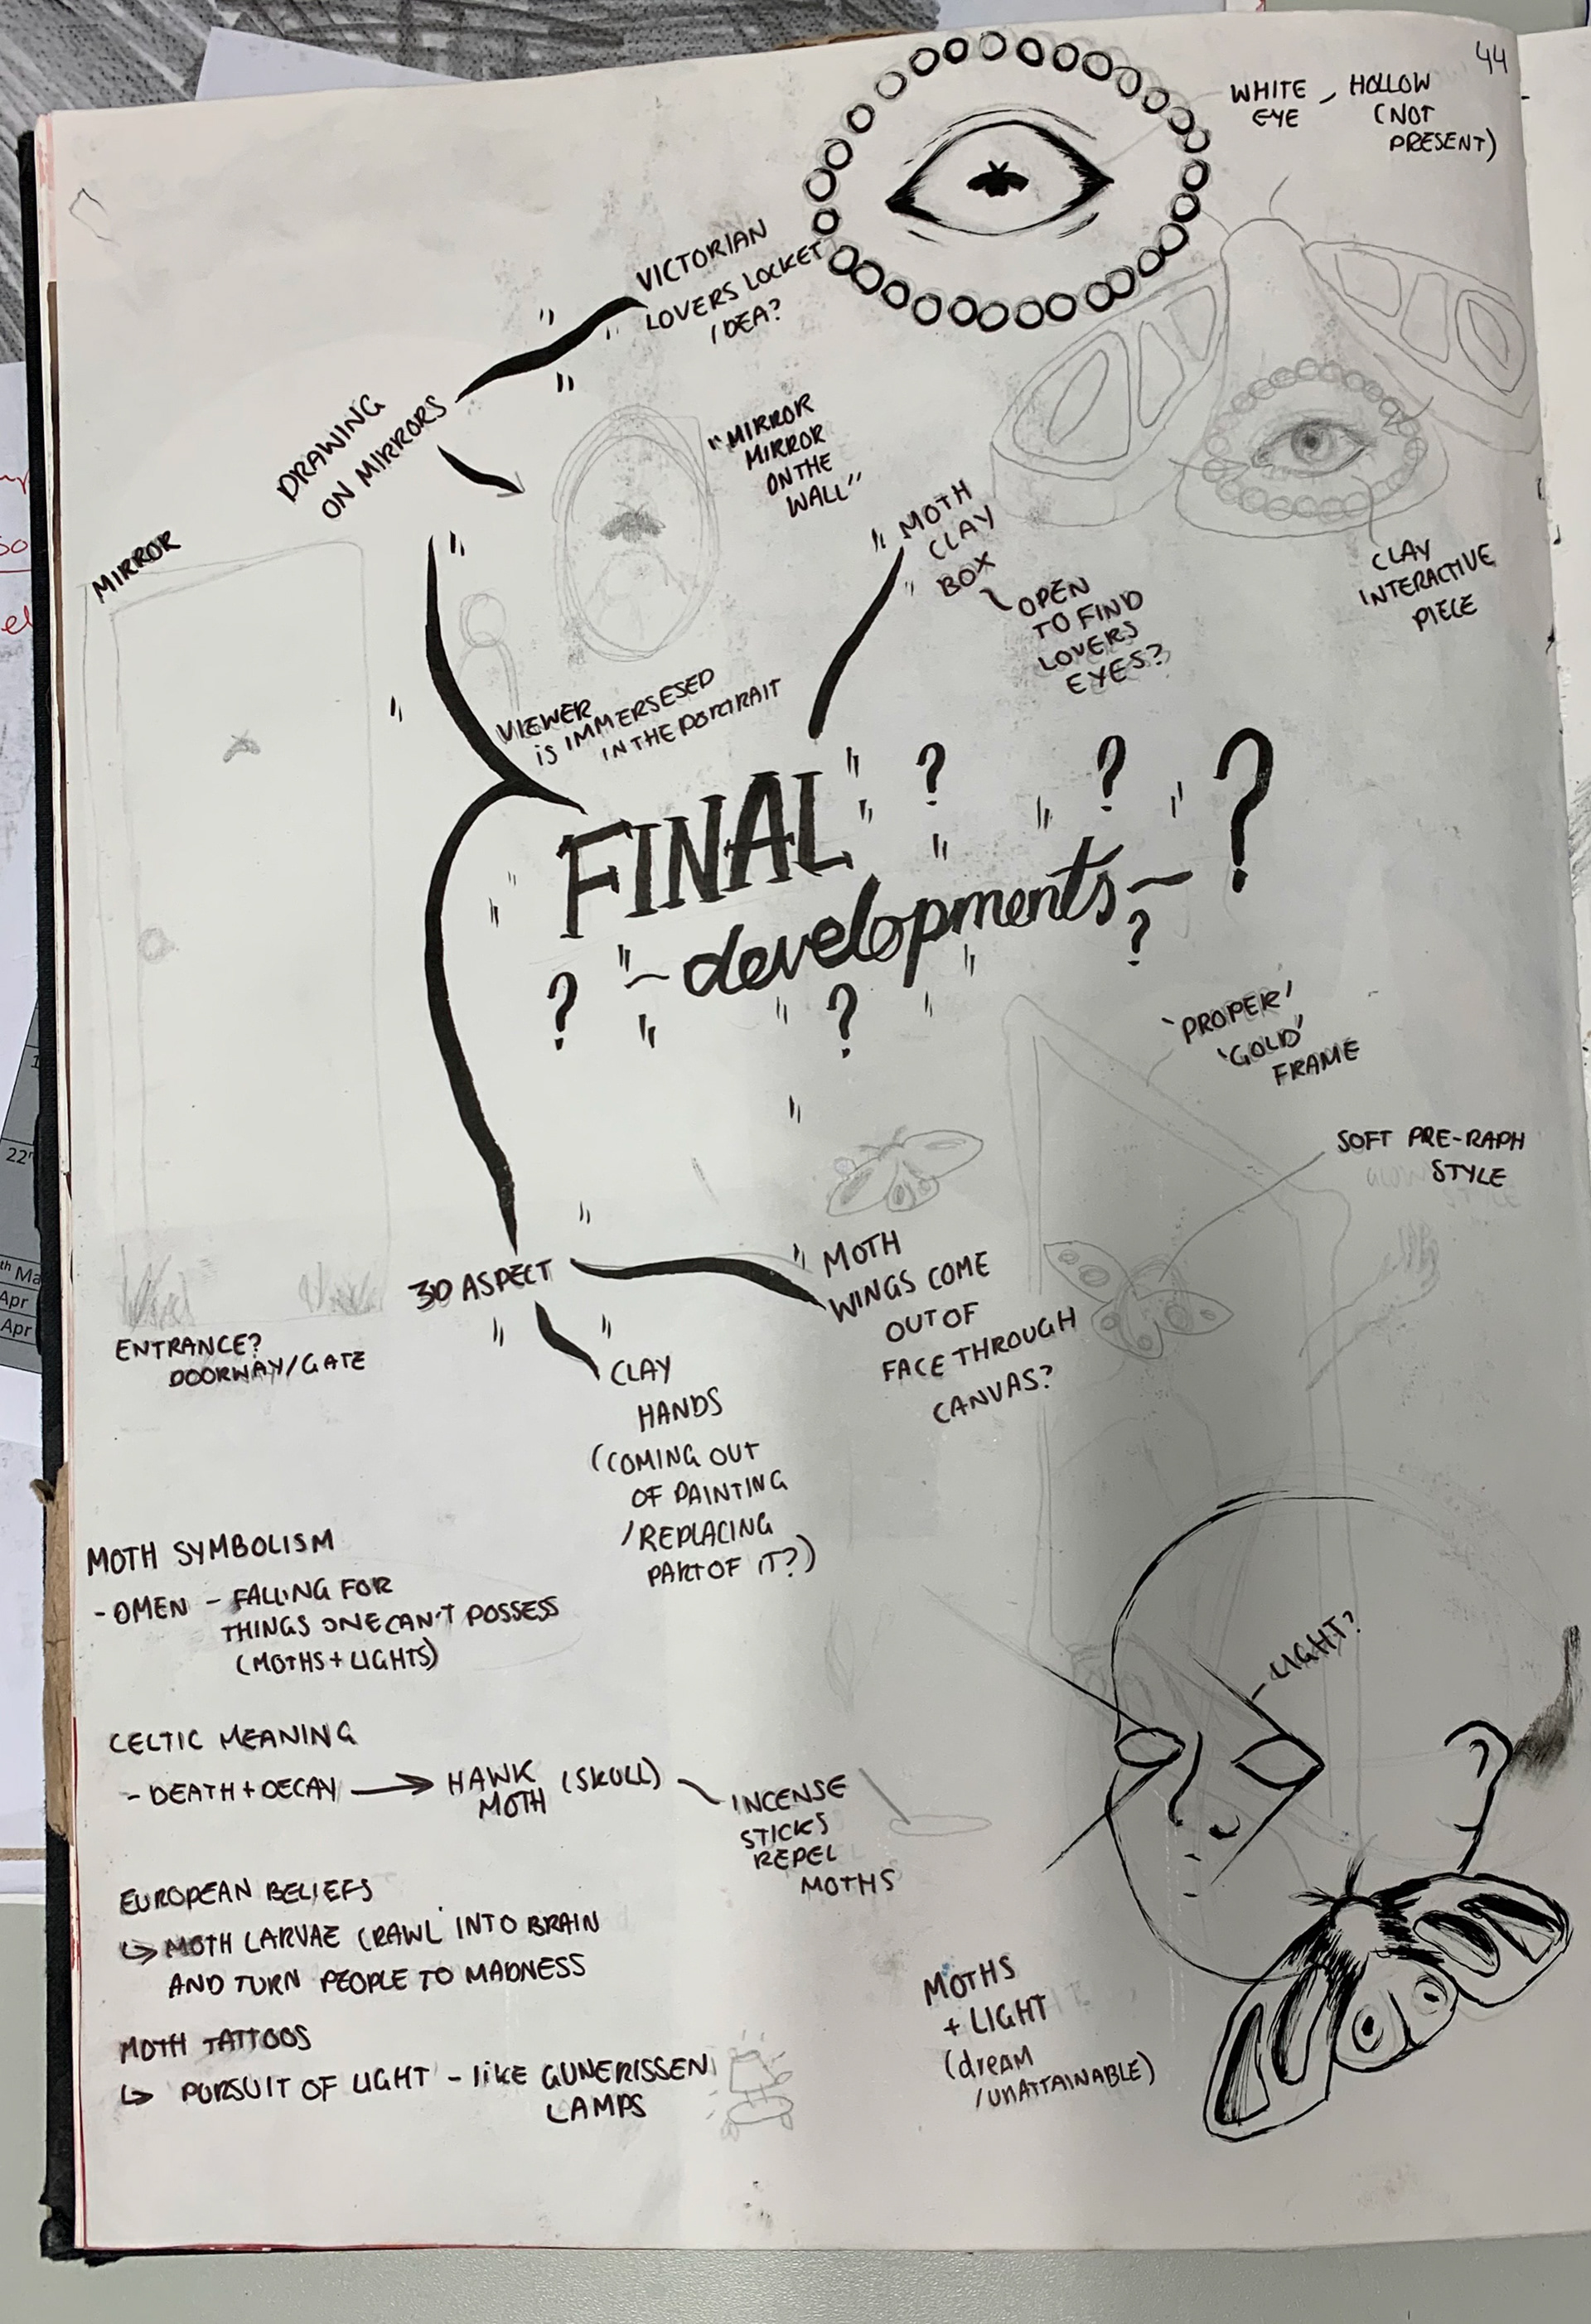 44
WHITE - HOLLOW
EYE (NOT
PRESENT)
VICTORIAN
LOVERS LOCKET
IDEA?
DRAWING
ON MIRRORS
"MIRROR
MIRROR
ON THE
WALL"
MIRROR
MOTH
CLAY
BOX
OPEN
TO FIND
LOVERS
EYES?
CLAY
INTERACTIVE
PIECE
VIEWER
is IMMERSESED
IN THE PORTRAIT
FINAL
developments
? ? ? ? ? ?
'PROPER'
'GOLD'
FRAME
SOFT PRE-RAPH
STYLE
3D ASPECT
MOTH
WINGS COME
OUT OF
FACE THROUGH
CANVAS?
ENTRANCE?
DOORWAY/GATE
CLAY
HANDS
(COMING OUT
OF PAINTING
/REPLACING
PART OF IT?)
MOTH SYMBOLISM
- OMEN - FALLING FOR
THINGS ONE CAN'T POSSESS
(MOTHS + LIGHTS)
LIGHT?
CELTIC MEANING
- DEATH + DECAY → HAWK (SKULL)
MOTH
INCENSE
STICKS
REPEL
MOTHS
EUROPEAN BELIEFS
↳ MOTH LARVAE CRAWL INTO BRAIN
AND TURN PEOPLE TO MADNESS
MOTH TATTOOS
↳ PURSUIT OF LIGHT - like GUNERISSEN
LAMPS
MOTHS
+ LIGHT
(dream
/UNATTAINABLE)
22
th Ma
Apr
Apr